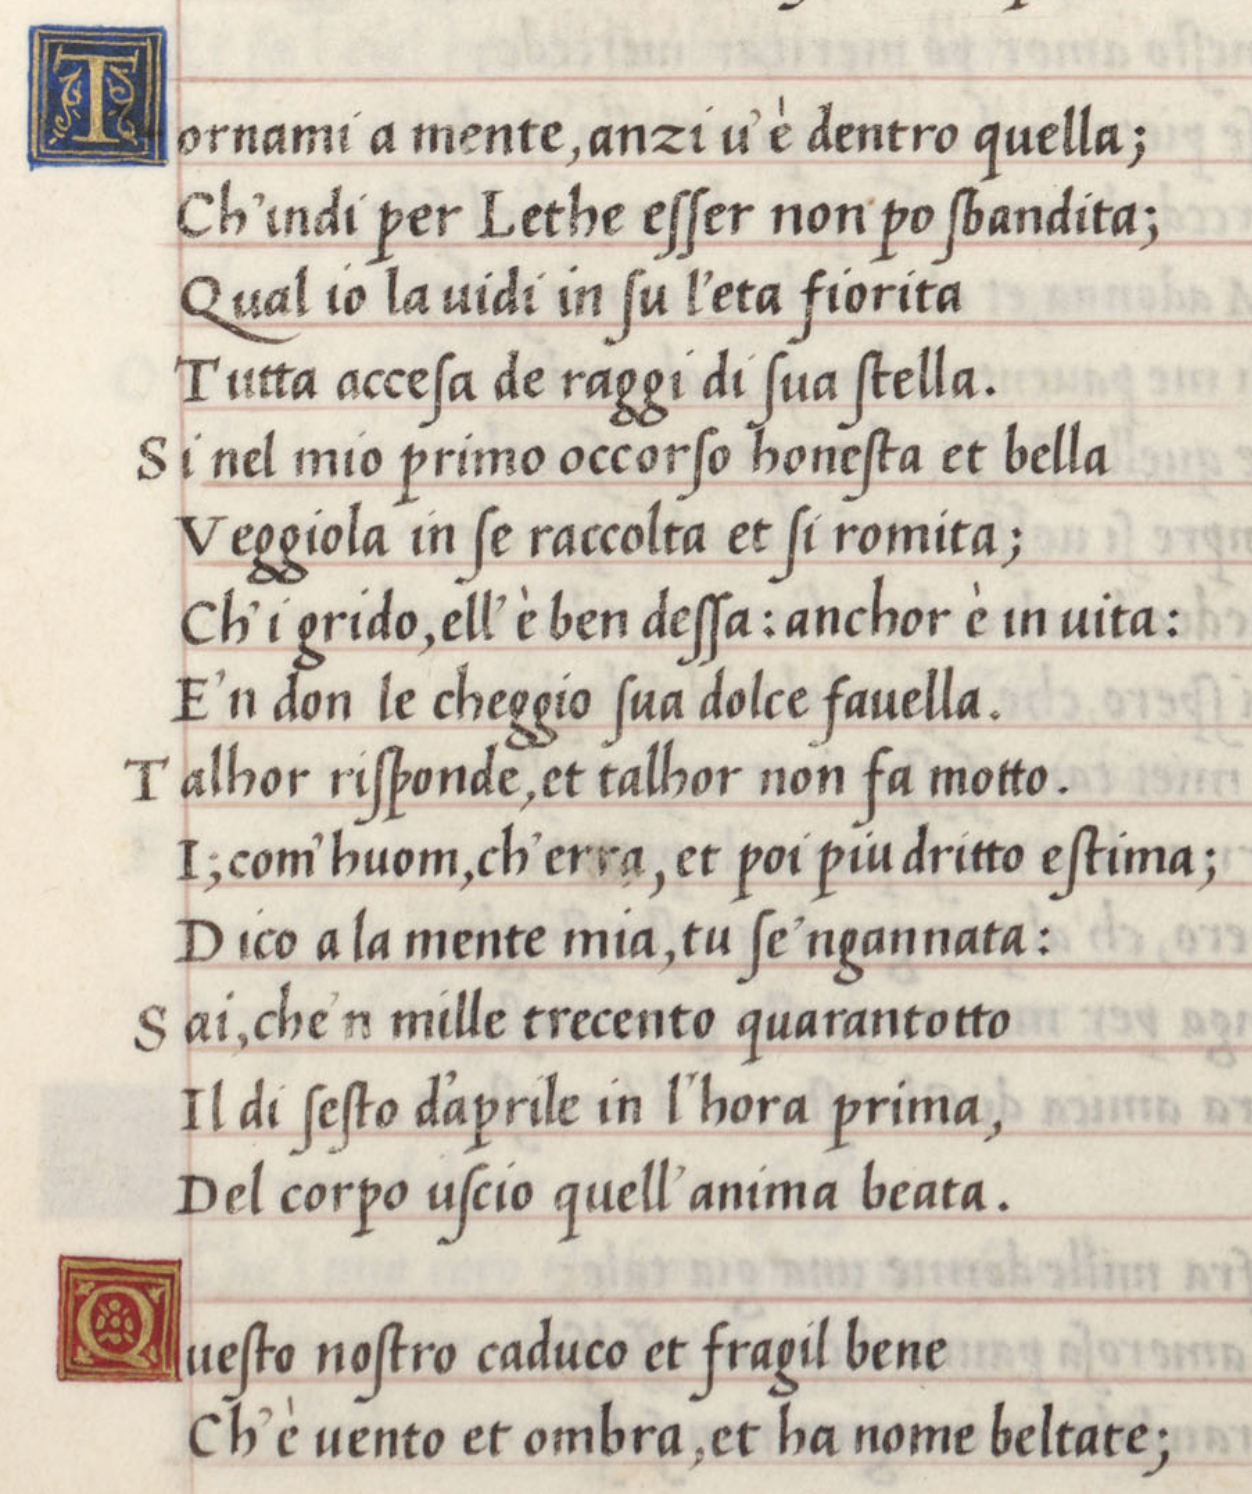 Tornami a mente, anzi u'è dentro quella;
Ch'indi per Lethe eſſer non po ſbandita;
Qual io la uidi in ſu l'eta fiorita
Tutta acceſa de raggi di ſua ſtella.
Si nel mio primo occorſo honeſta et bella
Veggiola in ſe raccolta et ſi romita;
Ch'i grido, ell'è ben deſſa: anchor è in uita:
E'n don le cheggio ſua dolce fauella.
Talhor riſponde, et talhor non fa motto.
I; com'huom, ch'erra, et poi piu dritto eſtima;
Dico a la mente mia, tu ſe'ngannata:
Sai, che'n mille trecento quarantotto
Il di ſeſto d'aprile in l'hora prima,
Del corpo uſcio quell'anima beata.
Queſto noſtro caduco et fragil bene
Ch'è uento et ombra, et ha nome beltate;